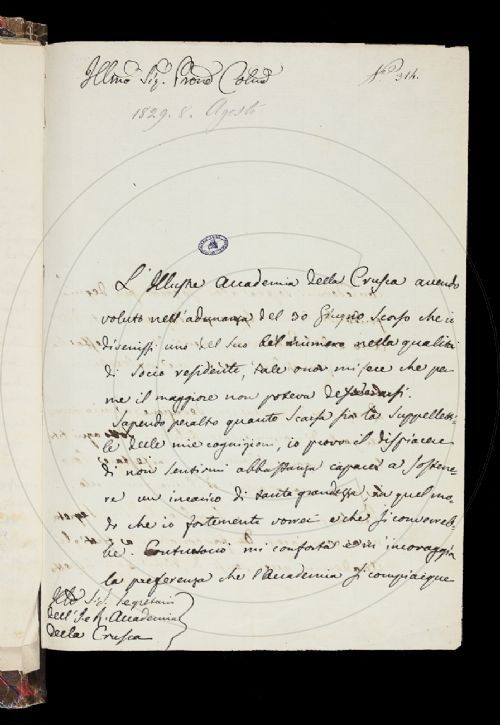 Illmo Sig. Prone Colmo
No 314.
1829. 8. Agosto
L'Illustre Accademia della Crusca avendo
voluto nell'adunanza del 30 Giugno Scorso che io
divenissi uno del Suo bel numero nella qualità
di Socio residente, tale onor mi fece che per
me il maggiore non poteva
Sapendo peraltro quanto Scarsa sia la Suppellet-
le delle mie cognizioni, io provo il dispiacere
di non sentirmi abbastanza capace a Sostene-
re un incarico di tanta grandezza, in quel mo-
do che io fortemente vorrei e che si converreb-
be. Contuttociò mi conforta e m'incoraggia
la preferenza che l'Accademia si compiacque
Sig. Segretario
dell'I. e R. Accademia
della Crusca